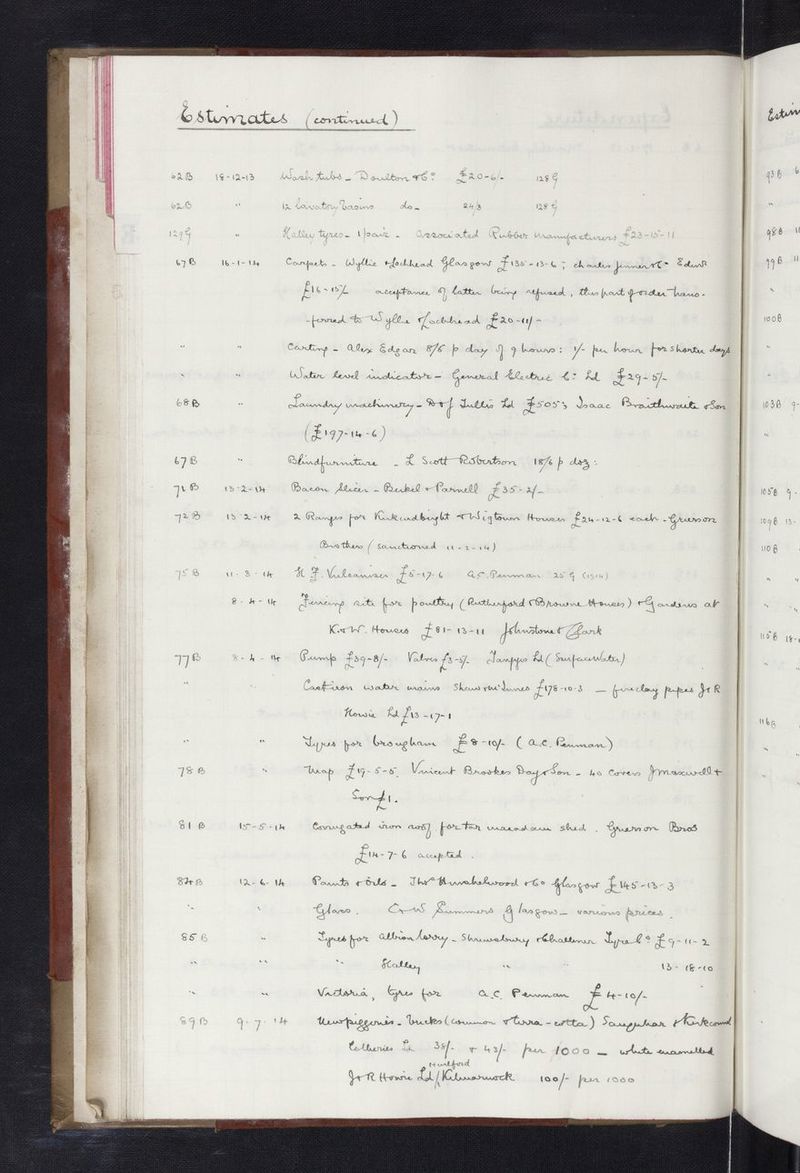 Estimates (continued)
62B 18-12-13 Wash tubs - Doulton & Co £20-6/- 128 G
62B " 12 lavatory basins do- 24/3 128 G
129 G " Halley tyres - 1 pair - Associated Rubber Manufacturers £23-15-11
67B 16-1-14 Carpets - Wyllie & Lochhead Glasgow £135-13-6; Charles Jenner & Co Edinr
£16-15/- acceptance of latter being refused, this part of order trans-
-ferred to Wyllie & Lochhead £20-11/-
" " Carting - Alex Edgar 8/6 p day of 9 hours: 1/- per hour for shorter days
" " Water level indicator - General Electric Co Ld £29-5/-
68B " Laundry machinery - D & J Tullis Ld £505; Isaac Braithwaite & Son
(£197-14-6)
67B " Blindfurniture - L Scott Robertson 18/6 p doz:
71B 13-2-14 Bacon slicer - Berkel & Parnell £35-2/-
72B 13-2-14 2 Ranges for Kirkcudbright & Wigtown Houses £24-12-6 each - Grierson
Brothers (sanctioned 11-2-14)
75B 11-3-14 H F Vulcaniser £5-17-6 A.C. Penman 25 G (1914)
8-4-14 Fencing site for poultry (Rutherford & Browne Houses) & Gardens at
K & W. Houses £81-13-11 Johnstone & Clark
77B 8-4-14 Pump £39-8/- Valves £3-5/- Tangyes Ld (Surface Water)
" " Cast iron water mains Shaw & McInnes £178-10-3 — fireclay pipes J & R
Howie Ld £13-17-1
" " Tyres for brougham £8-10/- (A.C. Penman)
78B " Map £19-5-5. Vincent Brookes Day & Son - 40 covers J Maxwell &
Son £1.
81B 15-5-14 Corrugated iron roof for tar macadam shed. Grierson Bros
£14-7-6 accepted.
84B 12-6-14 Paints & Oils - Thos Hinshelwood & Co Glasgow £145-13-3
" " Glass. C & W Summers Glasgow - various prices.
85B " Tyres for Albion lorry - Shrewsbury & Challiner Tyre Co £9-11-2
" " " Halley " " 13-18-10
" " Victoria, tyres for A.C. Penman £4-10/-
89B 9-7-14 New piggeries - bricks (common & terra-cotta) Sanquhar & Kirkconnel
Collieries Ld 38/- & 43/- per 1000 — white enamelled
J & R Howie Ld / Hurlford Kilmarnock 100/- per 1000
Estim
93B 6
"
98B 11
99B "
"
100B
103B 9-
"
105B 9-
109B 13-
110B
" "
" "
115B 18-
"
116B
"
"